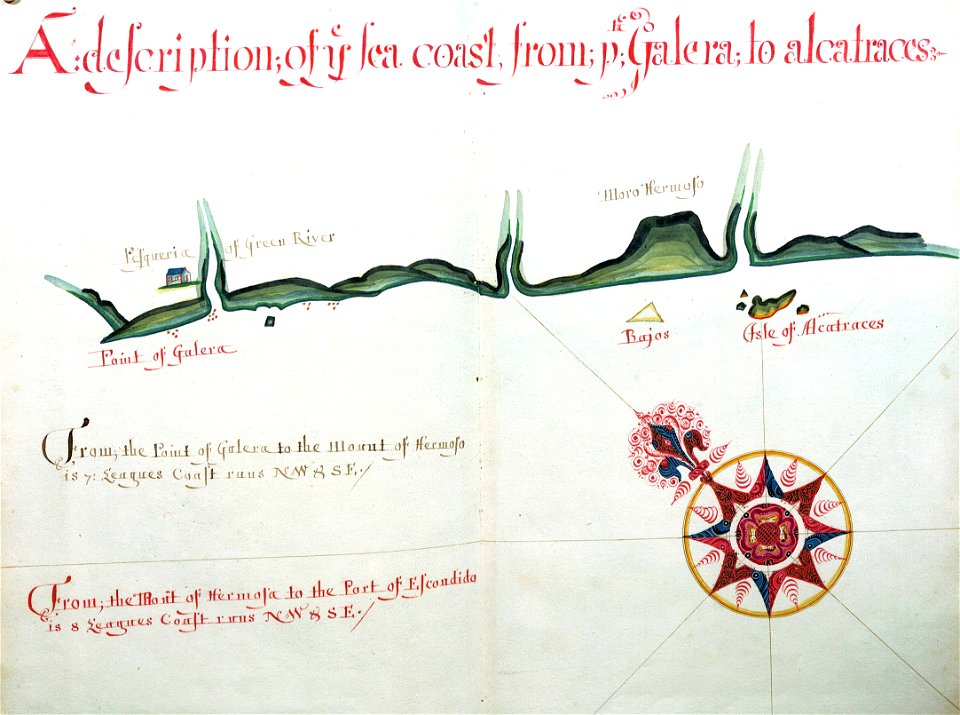 A: description; of yᵉ sea coast, from; pᵗᵉ; Galera; to alcatraces:~
Moro Hermoso
Pesqueria of Green River
Bajos
Isle of Alcatraces
Point of Galera
From; the Point of Galera to the Mount of Hermoso
is 7: Leagues Coast runs NW & SE./
From; the Mont of Hermosa to the Port of Escondido
is 8 Leagues Coast runs NW & SE./